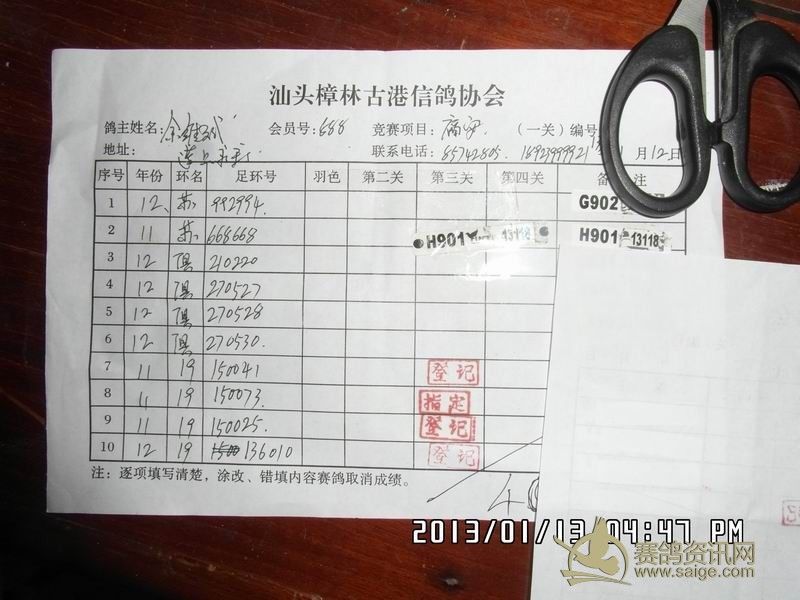 汕头樟林古港信鸽协会
鸽主姓名: 会员号: 688 竞赛项目: (一关) 编号
地址: 联系电话: 85742805. 月12日
序号 年份 环名 足环号 羽色 第二关 第三关 第四关 备 注
1 12 苏 992994. G902
2 11 苏 668668 H901 13118 H901 13118
3 12 俱 210220
4 12 俱 270527
5 12 俱 270528
6 12 俱 270530.
7 11 19 150041 登记
8 11 19 150073. 指定
9 11 19 150025. 登记
10 12 19 136010 登记
注: 逐项填写清楚, 涂改、错填内容赛鸽取消成绩。
2013/01/13 04:47 PM
赛鸽资讯网
www.saige.com